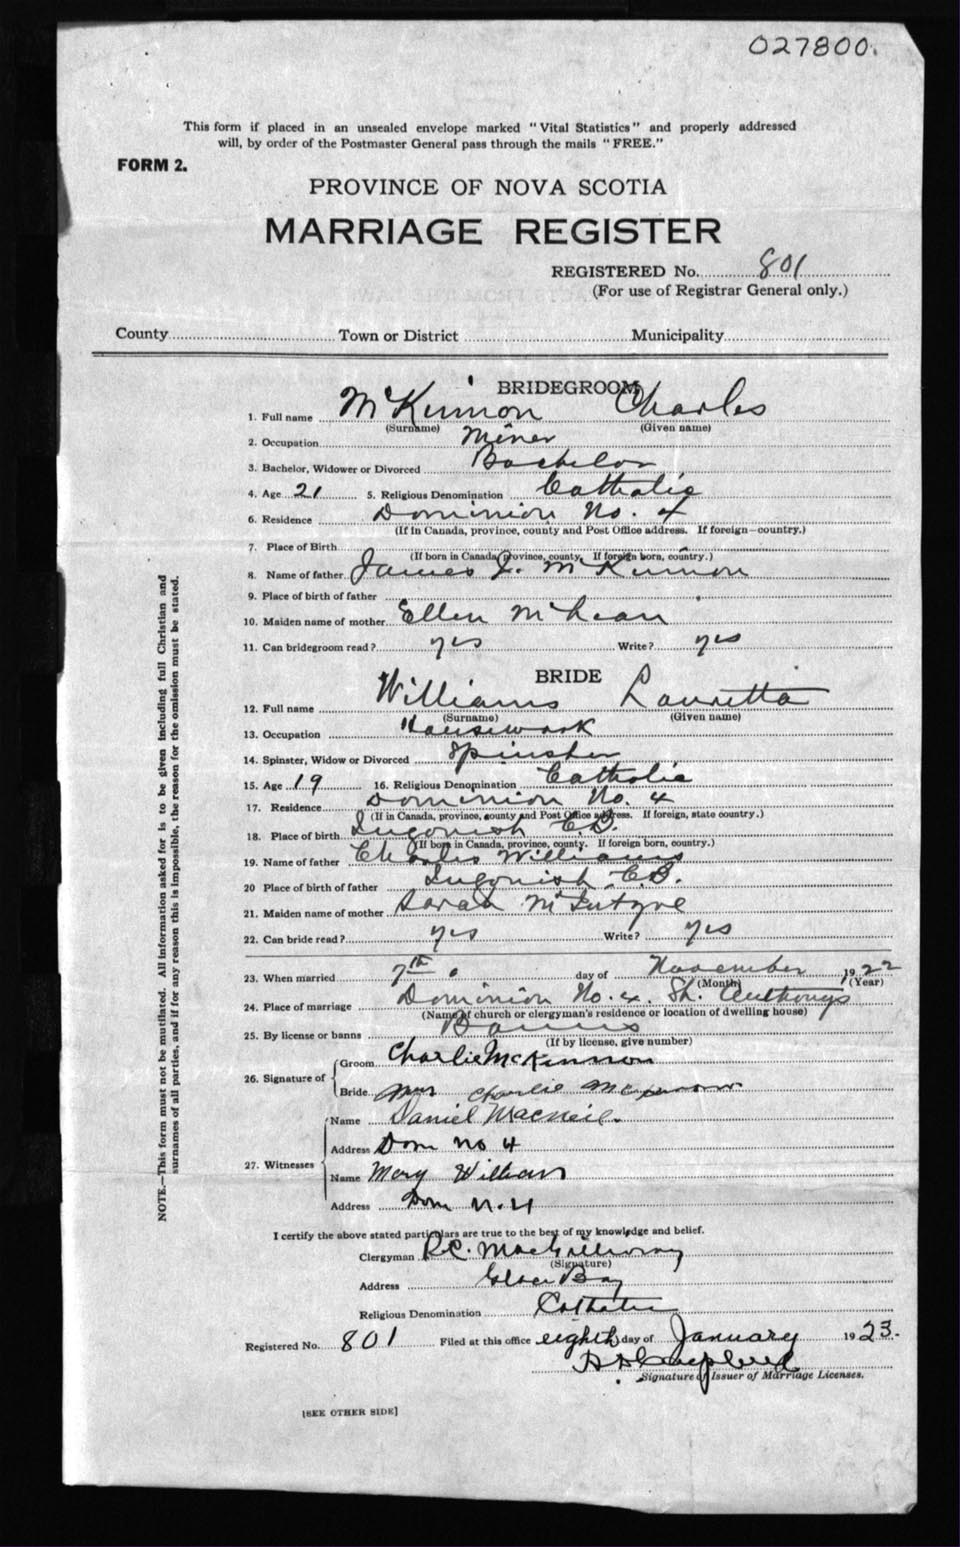 027800.
This form if placed in an unsealed envelope marked "Vital Statistics" and properly addressed
will, by order of the Postmaster General pass through the mails "FREE."
FORM 2.
PROVINCE OF NOVA SCOTIA
MARRIAGE REGISTER
REGISTERED No. 801
(For use of Registrar General only.)
County Town or District Municipality
BRIDEGROOM
1. Full name McKinnon Charles
(Surname) (Given name)
2. Occupation Miner
3. Bachelor, Widower or Divorced Bachelor
4. Age 21 5. Religious Denomination Catholic
6. Residence Dominion No. 4
(If In Canada, province, county and Post Office address. If foreign—country.)
7. Place of Birth
(If born in Canada, province, county. If foreign born, country.)
8. Name of father James J. McKinnon
9. Place of birth of father
10. Maiden name of mother Ellen McLean
11. Can bridegroom read? yes Write? yes
BRIDE
12. Full name Williams Lauretta
(Surname) (Given name)
13. Occupation Housework
14. Spinster, Widow or Divorced Spinster
15. Age 19 16. Religious Denomination Catholic
17. Residence Dominion No. 4
(If in Canada, province, county and Post Office address. If foreign, state country.)
18. Place of birth Ingonish C.B.
(If born in Canada, province, county. If foreign born, country.)
19. Name of father Charles Williams
20 Place of birth of father Ingonish C.B.
21. Maiden name of mother Sarah McIntyre
22. Can bride read? yes Write? yes
23. When married 7th day of November 1922
(Month) (Year)
24. Place of marriage Dominion No. 4. St. Anthonys
(Name of church or clergyman's residence or location of dwelling house)
25. By license or banns Banns
(If by license, give number)
26. Signature of Groom Charlie McKinnon
Bride Mrs Charlie
27. Witnesses Name Daniel MacNeil.
Address Dom No 4
Name Mary Williams
Address Dom N. 4
I certify the above stated particulars are true to the best of my knowledge and belief.
Clergyman R.C. MacGillivray
(Signature)
Address Glace Bay
Religious Denomination Catholic
Registered No. 801 Filed at this office eighth day of January 1923.
Signature of Issuer of Marriage Licenses.
[SEE OTHER SIDE]
NOTE.—This form must not be mutilated. All information asked for is to be given including full Christian and
surnames of all parties, and if for any reason this is impossible, the reason for the omission must be stated.